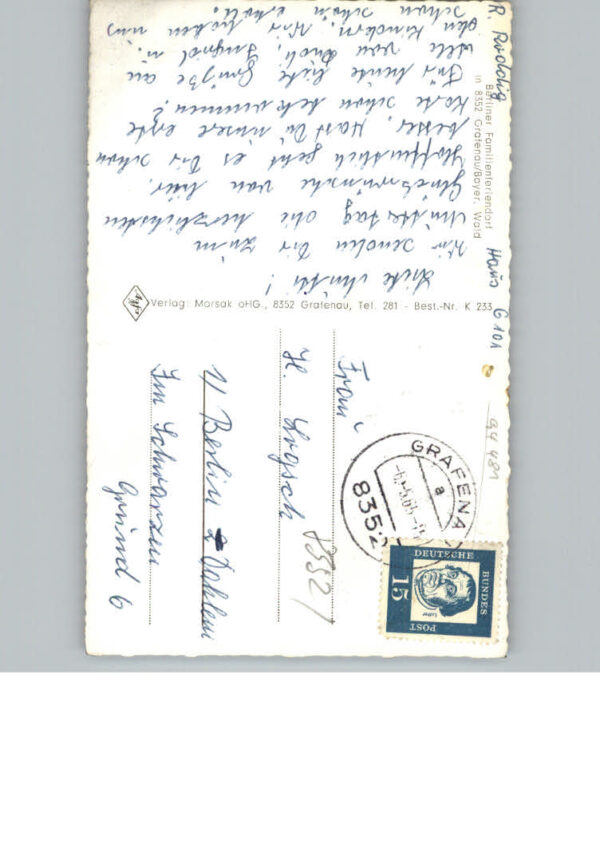 R. Roddig Haus G 101
Berliner Familienferiendorf
in 8352 Grafenau/Bayer. Wald
Liebe Mutti!
Wir senden Dir zum
Muttertag die herzlichsten
Glückwünsche von hier.
Hoffentlich geht es Dir schon
besser. Hast Du unsere erste
Karte schon bekommen?
Für heute liebe Grüße an
alle von
den Kindern. Wir haben uns
schon schön erholt.
Verlag: Morsak oHG., 8352 Grafenau, Tel. 281 - Best.-Nr. K 233
Agfa
Frau
H.
1/ Berlin Dahlem
Im Schwarzen
Grund 6
GRAFENAU
a
8352
DEUTSCHE
BUNDES
POST
15
Luther